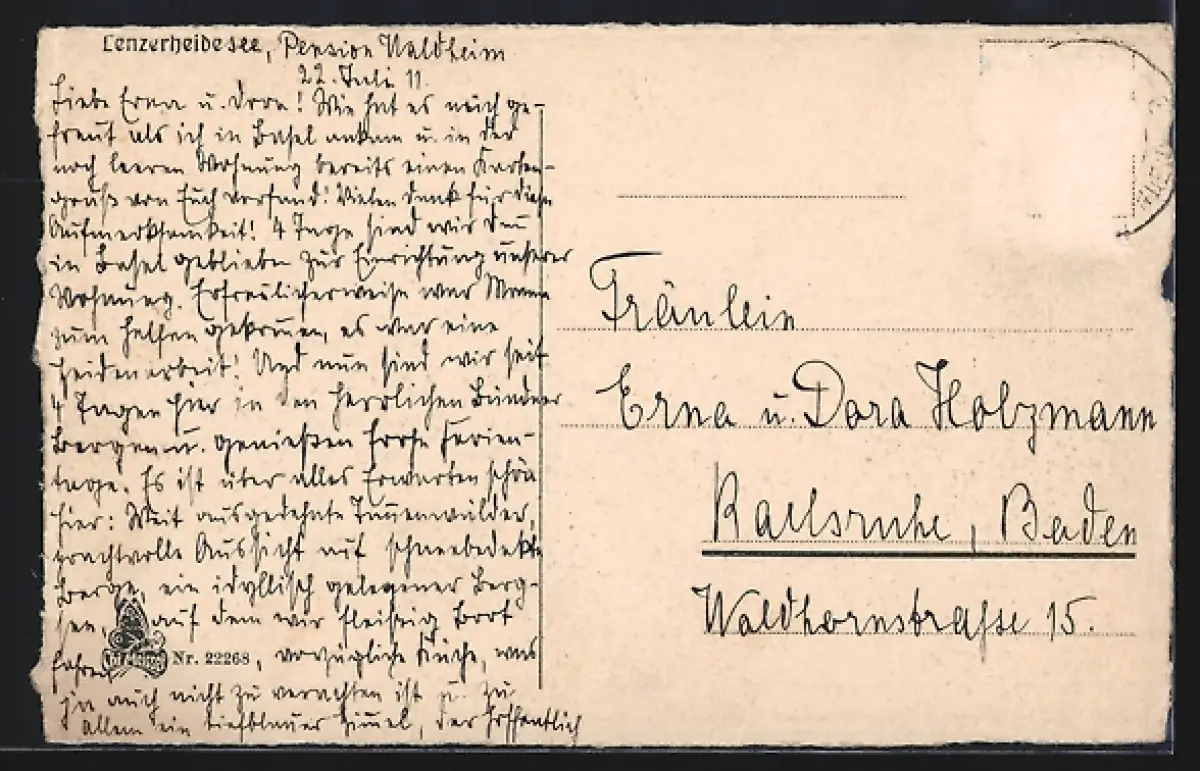 Lenzerheidesee, Pension Waldheim
22. Juli 11.
Liebe Erna u. Dora! Wie hat es mich ge-
freut als ich in Basel ankam u. in der
noch leeren Wohnung bereits einen Karten-
gruß von Euch vorfand! Vielen Dank für diese
Aufmerksamkeit! 4 Tage sind wir
in Basel geblieben zur Einrichtung unserer
Wohnung. Erfreulicherweise war Mama
zum helfen gekom̄en, es war eine
Heidenarbeit! Und nun sind wir seit
4 Tagen hier in den herrlichen Bündner
Bergen u. genießen frohe Ferien-
tage. Es ist über alles Erwarten schön
hier: Weit ausgedehnte Tan̄enwälder,
prachtvolle Aussicht auf schneebedeckte
Berge, ein idyllisch gelegener Berg-
see, auf dem wir fleißig Boot
fahren, vorzügliche Küche, was
Nr. 22268
ja auch nicht zu verachten ist u. zu
allem ein tiefblauer Him̄el, der hoffentlich
Fräulein
Erna u. Dora Holzmann
Karlsruhe, Baden
Waldhornstrasse 15.